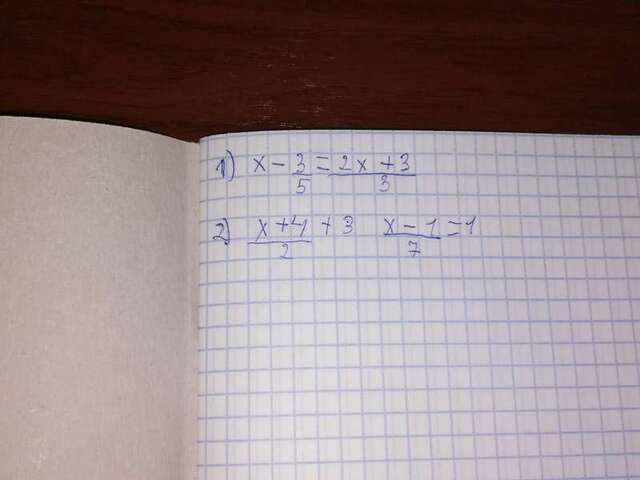 1) x - 3/5 = 2x + 3/3
2) x + 4/2 + 3 x - 1/7 = 1